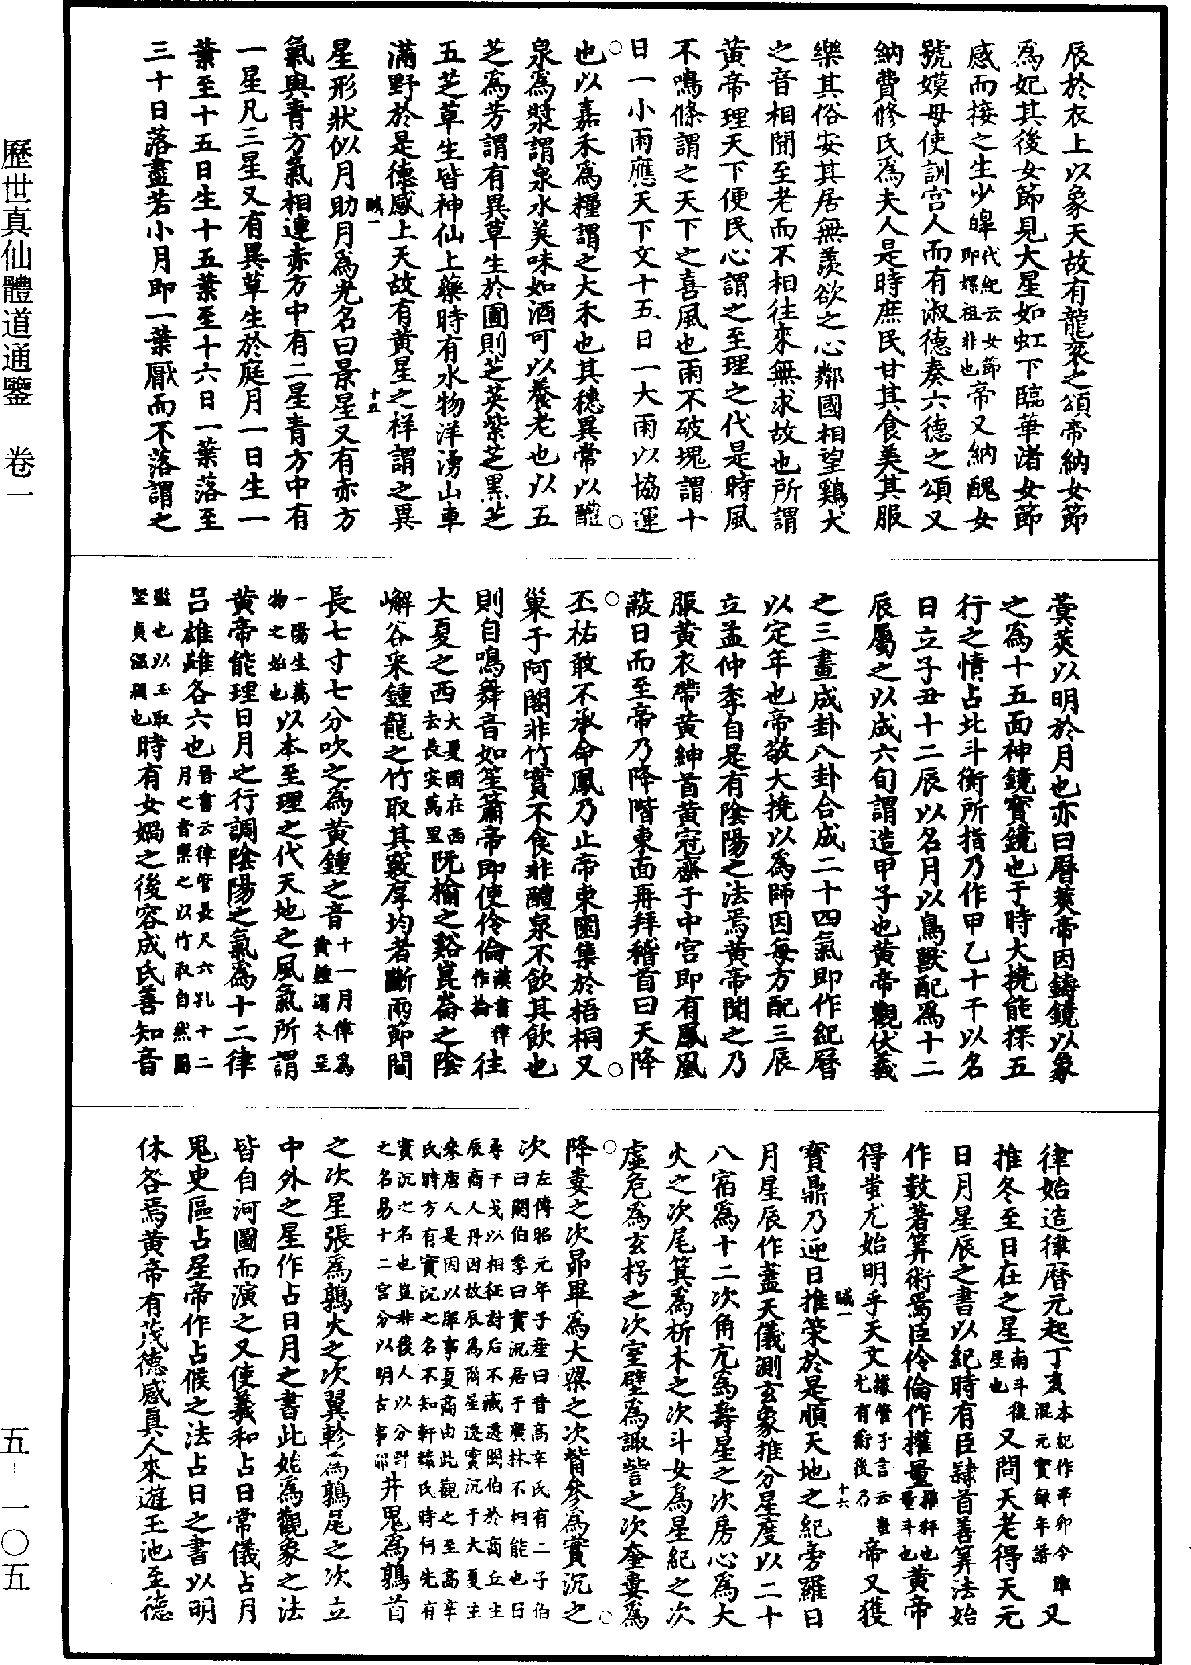 歷世真仙體道通鑒 卷一
五-一〇五
辰於衣上以象天故有龍袞之頌帝納女節
為妃其後女節見大星如虹下臨華渚女節
感而接之生少皞代紀云女節即嫘祖非也帝又納醜女
號嫫母使訓宫人而有淑德奏六德之頌又
納費修氏為夫人是時庶民甘其食美其服
樂其俗安其居無羨欲之心鄰國相望鷄犬
之音相聞至老而不相往來無求故也所謂
黃帝理天下便民心謂之至理之代是時風
不鳴條謂之天下之喜風也雨不破塊謂十
日一小雨應天下文十五日一大雨以協運
也以嘉禾為糧謂之大禾也其穗異常以醴
泉為漿謂泉水美味如酒可以養老也以五
芝為芳謂有異草生於圃則芝英紫芝黑芝
五芝草生皆神仙上藥時有水物洋湧山車
滿野於是德感上天故有黃星之祥謂之異
星形狀似月助月為光名曰景星又有赤方
氣與青方氣相連赤方中有二星青方中有
一星凡三星又有異草生於庭月一日生一
葉至十五日生十五葉至十六日一葉落至
三十日落盡若小月即一葉厭而不落謂之
蓂莢以明於月也亦曰曆莢帝因鑄鏡以象
之為十五面神鏡寶鏡也于時大撓能探五
行之情占北斗衡所指乃作甲乙十干以名
日立子丑十二辰以名月以鳥獸配為十二
辰屬之以成六旬謂造甲子也黃帝觀伏羲
之三畫成卦八卦合成二十四氣即作紀曆
以定年也帝敬大撓以為師因每方配三辰
立孟仲季自是有陰陽之法焉黃帝聞之乃
服黃衣帶黃紳首黃冠齋于中宮即有鳳凰
蔽日而至帝乃降階東面再拜稽首曰天降
丕祜敢不承命鳳乃止帝東園集於梧桐又
巢于阿閣非竹實不食非醴泉不飲其飲也
則自鳴舞音如笙簫帝即使伶倫漢書律作綸往
大夏之西大夏國在西去長安萬里阮榆之谿崑崙之陰
嶰谷采鍾龍之竹取其竅厚均者斷兩節間
長七寸七分吹之為黃鍾之音十一月律為黃鍾謂冬至
一陽生萬物之始也以本至理之代天地之風氣所謂
黃帝能理日月之行調陰陽之氣為十二律
呂雄雌各六也晉書云律管長尺六孔十二月之音樂之以竹取自然圓
虛也以玉取堅貞溫潤也時有女媧之後容成氏善知音
律始造律曆元起丁亥本紀作辛卯今以混元實錄年譜又
推冬至日在之星南斗後星也又問天老得天元
日月星辰之書以紀時有臣隸首善算法始
作數著算術焉臣伶倫作權量權秤也量斗也黃帝
得蚩尤始明乎天文據管子言云蚩尤有術後乃帝又獲
寶鼎乃迎日推策於是順天地之紀旁羅日
月星辰作蓋天儀測玄象推分星度以二十
八宿為十二次角亢為壽星之次房心為大
火之次尾箕為析木之次斗女為星紀之次
虛危為玄枵之次室壁為諏訾之次奎婁為
降婁之次昴畢為大梁之次觜參為實沉之
次左傳昭元年子產曰昔高辛氏有二子伯曰閼伯季曰實沉居于曠林不相能也日
尋干戈以相征討后不臧遷閼伯於商丘主辰商人丹因故辰為商星遷實沉于大夏主
參唐人是因以服事夏商由此觀之至高辛氏時方有實沉之名不知軒轅氏時何先有
實沉之名也豈非後人以分野之名易十二宮分以明古事耶井鬼為鶉首
之次星張為鶉火之次翼軫為鶉尾之次立
中外之星作占日月之書此始為觀象之法
皆自河圖而演之又使羲和占日常儀占月
鬼臾區占星帝作占候之法占日之書以明
休咎焉黃帝有茂德感真人來遊玉池至德